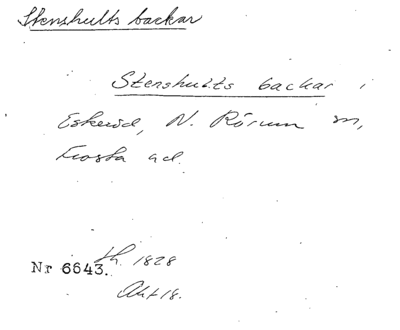 Stenshults backar
Stenshults backar i
Eskeröd, N. Rörum sn,
Frosta hd.
Nr 6643. 1828
Akt 18.